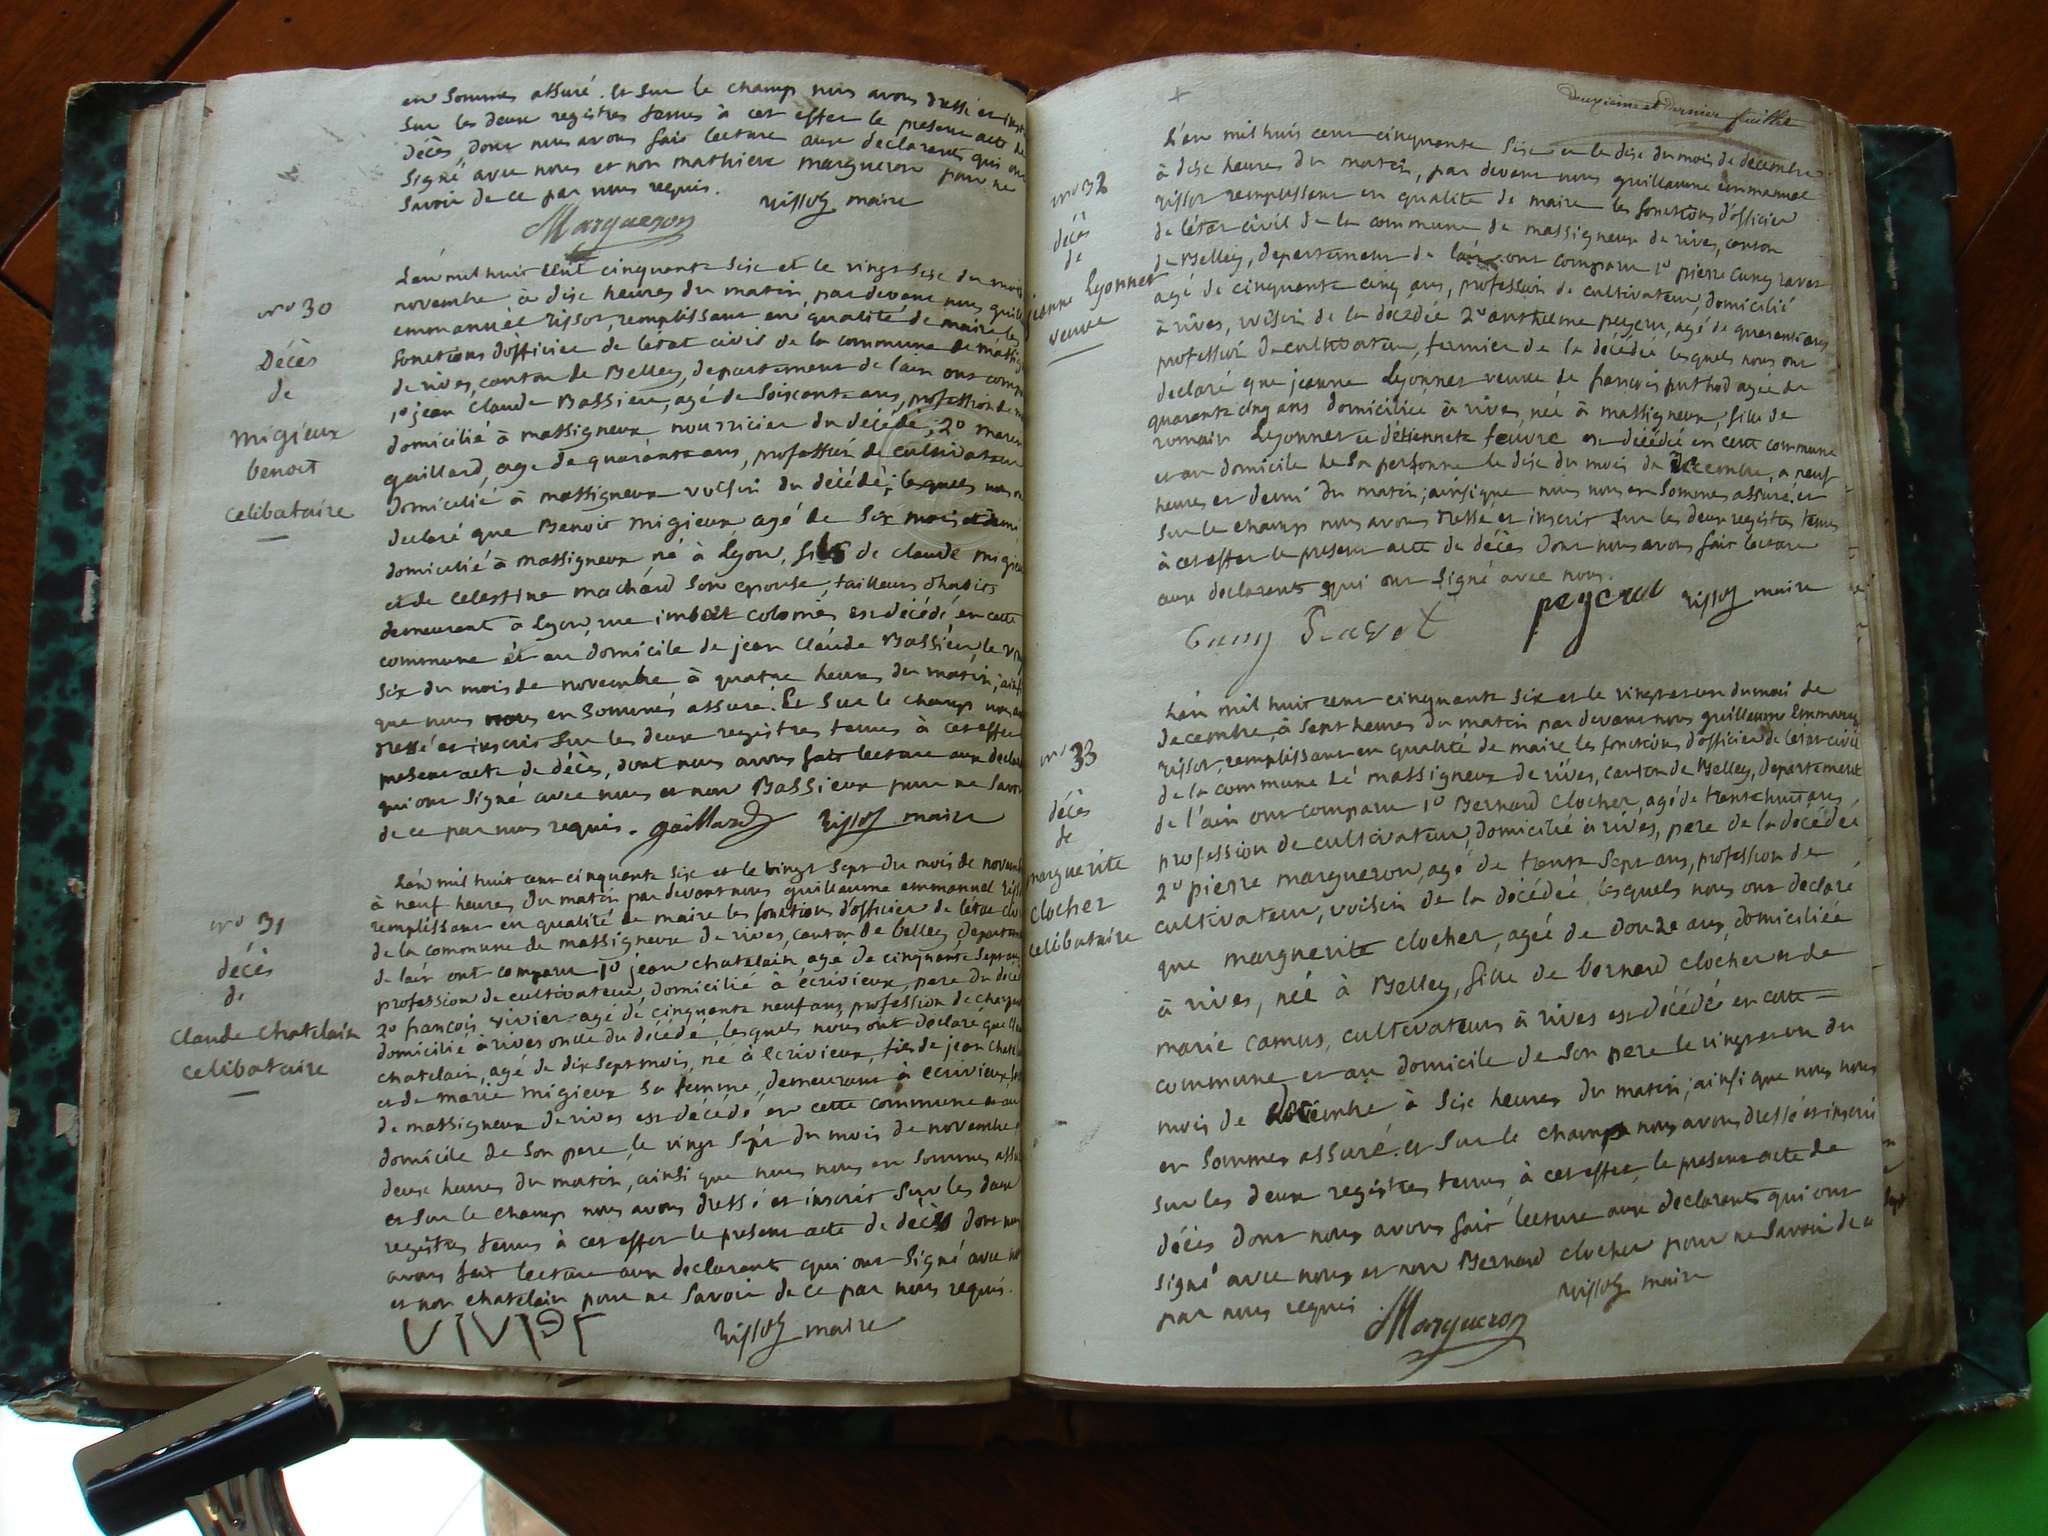 en sommes assuré. Et sur le champ nous avons dressé et inscrit
sur les deux registres tenus à cet effet le present acte de
décès, dont nous avons fait lecture aux declarants qui ont
signé avec nous et non mathieu margueron pour ne
savoir de ce par nous requis.
Margueron rissoz maire
n° 30
Décès
de
migieux
benoit
celibataire
L'an mil huit cent cinquante six et le vingt six du mois
novembre à dix heures du matin, par devant nous guill
emmanuel rissoz, remplissant en qualité de maire les
fonctions d'officier de l'etat civil de la commune de massig
de rives, canton de Belley, departement de l'ain ont compa
1° jean claude Bassieu, agé de soixante ans, profession de
domicilié à massigneux nourricier du décédé; 2°
gaillard, agé de quarante ans, profession de cultivateur
domicilié à massigneux voisin du décédé; lesquels nous
declaré que Benoit migieux agé de six mois et demi
domicilié à massigneux, né à Lyon, fils de claude migieu
et de celestine machard son epouse, tailleurs d'habits
demeurant à Lyon, rue imbert colomès est décédé en cette
commune et au domicile de jean claude Bassieu, le vin
six du mois de novembre à quatre heures du matin; ainsi
que nous nous en sommes assuré. Et sur le champ nous
dressé et inscrit sur les deux registres tenus à cet effet
present acte de décès, dont nous avons fait lecture aux declar
qui ont signé avec nous et non Bassieux pour ne savoir
de ce par nous requis. gaillard rissoz maire
n° 31
décès
de
Claude Chatelain
celibataire
L'an mil huit cent cinquante six et le vingt sept du mois de novemb
à neuf heures du matin par devant nous guillaume emmanuel riss
remplissant en qualité de maire les fonctions d'officier de l'etat civ
de la commune de massigneux de rives, canton de belley, departem
de l'ain ont comparu 1° jean chatelain agé de cinquante sept ans
profession de cultivateur, domicilié à ecrivieux, pere du décéd
2° françois vivier agé de cinquante neuf ans, profession de charpen
domicilié à rives oncle du décédé, lesquels nous ont declaré que
chatelain, agé de dix sept mois, né à Ecrivieux, fils de jean chatel
et de marie migieux sa femme, demeurant à ecrivieux
de massigneux de rives est décédé en cette commune et au
domicile de son pere, le vingt sept du mois de novembre
deux heures du matin, ainsi que nous nous en sommes assu
et sur le champ nous avons dressé et inscrit sur les deux
registres tenus à cet effet le present acte de décès dont nous
avons fait lecture aux declarants qui ont signé avec nous
et non chatelain pour ne savoir de ce par nous requis.
VIVIER rissoz maire
deuxieme et dernier feuillet
n° 32
décès
de
jeanne Lyonnet
veuve
L'an mil huit cent cinquante six et le dix du mois de decembre
à dix heures du matin, par devant nous guillaume emmanuel
rissoz remplissant en qualité de maire les fonctions d'officier
de l'etat civil de la commune de massigneux de rives, canton
de Belley, departement de l'ain ont comparu 1° pierre Cuny ravet
agé de cinquante cinq ans, profession de cultivateur, domicilié
à rives, voisin de la décédée 2° anthelme peycru, agé de quarante ans
profession de cultivateur, fermier de la décédée lesquels nous ont
declaré que jeanne Lyonnet veuve de françois puthod agée de
quarante cinq ans domiciliée à rives, née à massigneux, fille de
romain Lyonnet et d'etiennete feuvre est décédée en cette commune
et au domicile de sa personne le dix du mois de decembre, a neuf
heures et demi du matin; ainsi que nous nous en sommes assuré, et
sur le champ nous avons dressé et inscrit sur les deux registres tenus
à cet effet le present acte de décès dont nous avons fait lecture
aux declarants qui ont signé avec nous.
Cuny Ravet peycru rissoz maire
n° 33
décès
de
marguerite
clocher
celibataire
L'an mil huit cent cinquante six et le vingt et un du mois de
decembre, à sept heures du matin par devant nous guillaume Emmanuel
rissoz, remplissant en qualité de maire les fonctions d'officier de l'etat civil
de la commune de massigneux de rives, canton de Belley, departement
de l'ain ont comparu 1° Bernard Clocher, agé de trente huit ans,
profession de cultivateur, domicilié à rives, pere de la décédée
2° pierre margueron, agé de trente sept ans, profession de
cultivateur, voisin de la décédée, lesquels nous ont declaré
que marguerite clocher, agée de douze ans, domiciliée
à rives, née à Belley, fille de bernard clocher et de
marie camus, cultivateurs à rives est décédée en cette
commune et au domicile de son pere le vingt et un du
mois de decembre à six heures du matin; ainsi que nous nous
en sommes assuré. et sur le champ nous avons dressé et inscrit
sur les deux registres tenus à cet effet, le present acte de
décès dont nous avons fait lecture aux declarants qui ont
signé avec nous et non Bernard clocher pour ne savoir de ce
par nous requis rissoz maire
Margueron